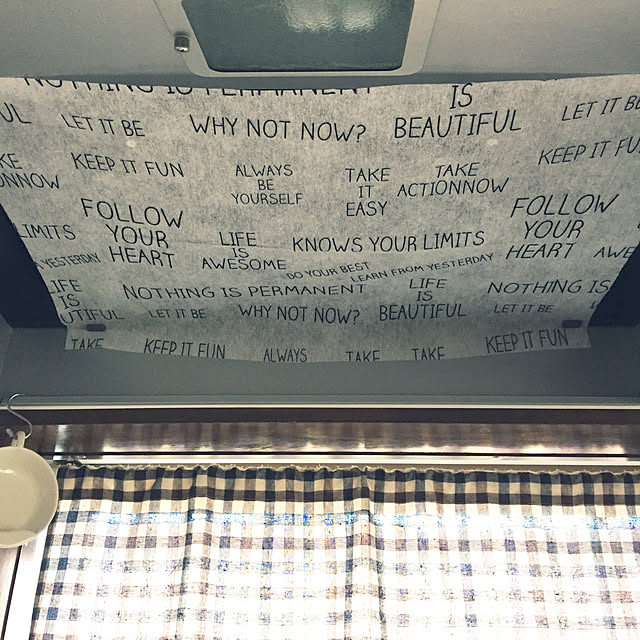 NOTHING IS PERMANENT
IS
BEAUTIFUL
LET IT BE
WHY NOT NOW?
LET IT BE
KEEP IT FUN
ALWAYS
BE
YOURSELF
TAKE
IT
EASY
TAKE
ACTIONNOW
KEEP IT FU
FOLLOW
YOUR
HEART
LIFE
IS
AWESOME
KNOWS YOUR LIMITS
FOLLOW
YOUR
HEART
LIMITS
YESTERDAY
DO YOUR BEST
LEARN FROM YESTERDAY
AWE
LIFE
IS
UTIFUL
NOTHING IS PERMANENT
LIFE
IS
BEAUTIFUL
NOTHING IS
LET IT BE
WHY NOT NOW?
LET IT BE
TAKE
KEEP IT FUN
ALWAYS
TAKE
TAKE
KEEP IT FUN